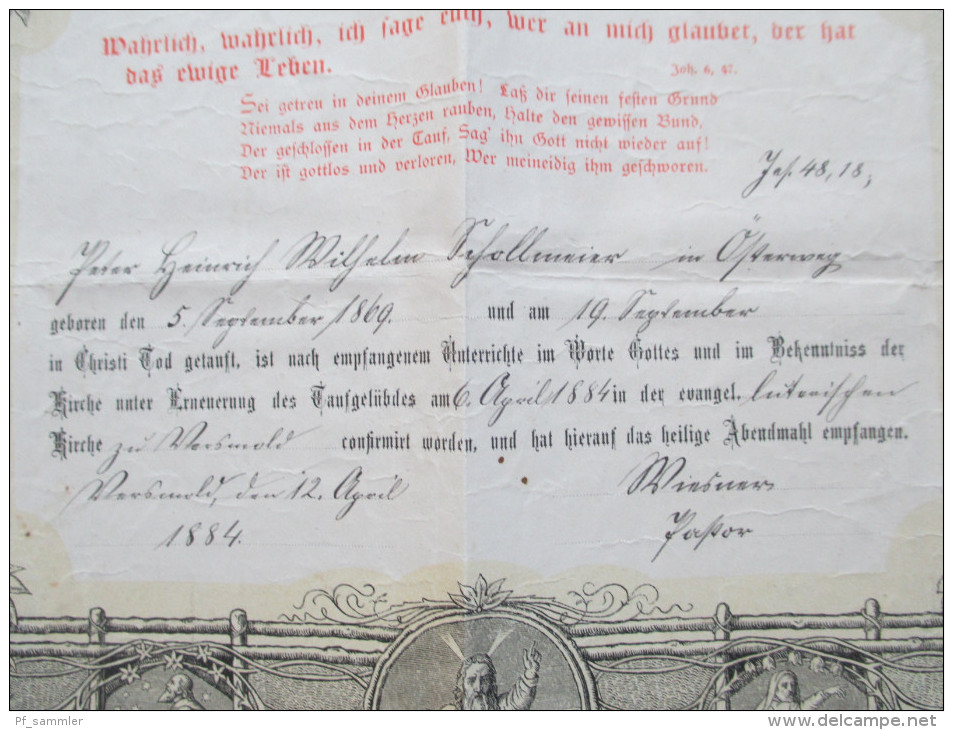 Wahrlich, wahrlich, ich sage euch, wer an mich glaubet, der hat
das ewige Leben.
Joh. 6, 47.
Sei getreu in deinem Glauben! Laß dir seinen festen Grund
Niemals aus dem Herzen rauben, Halte den gewissen Bund,
Der geschlossen in der Tauf, Sag' ihn Gott nicht wieder auf!
Der ist gottlos und verloren, Wer meineidig ihm geschworen.
Jes. 48, 18,
Peter Heinrich Wilhelm Schollmeier in Österweg
geboren den 5. September 1869. und am 19. September
in Christi Tod getauft, ist nach empfangenem Unterrichte im Worte Gottes und im Bekenntniss der
Kirche unter Erneuerung des Taufgelübdes am 6. April 1884 in der evangel. luterischen
Kirche zu Versmold confirmirt worden, und hat hierauf das heilige Abendmahl empfangen.
Versmold, den 12. April
1884.
Wiesner
Pastor
Pf_sammler
www.delcampe.net